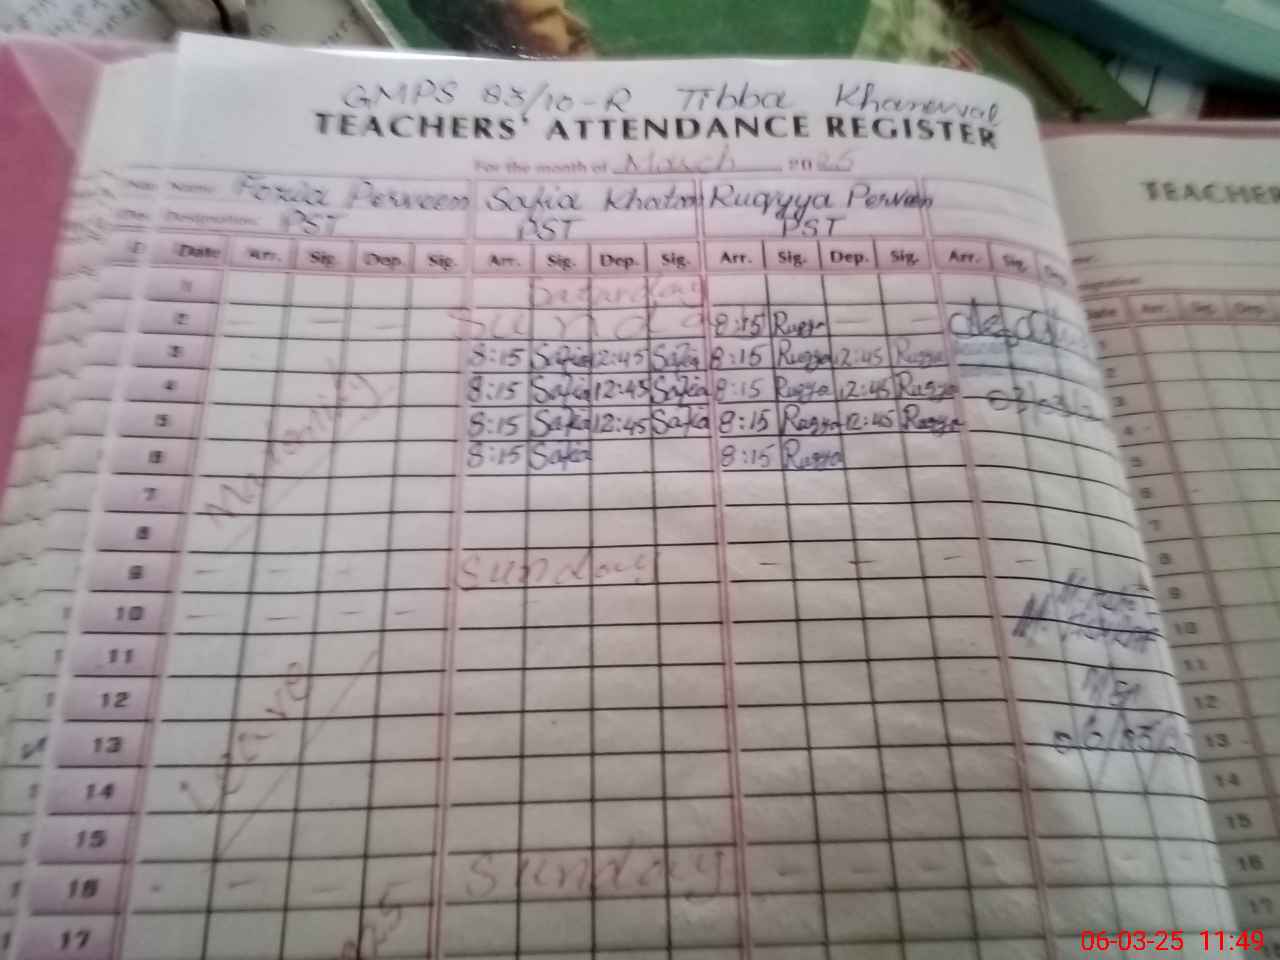 GMPS 83/10-R Tibba Khanewal
TEACHERS' ATTENDANCE REGISTER
For the month of March 2025
Name: Fozia Perveen Safia Khatoon Ruqyya Perveen
Designation: PST PST PST
Date Arr. Sig. Dep. Sig. Arr. Sig. Dep. Sig. Arr. Sig. Dep. Sig. Arr. Sig.
1 Saturday
2 — — — Sunda 8:15 Ruqya — —
3 8:15 Safia 12:45 Safia 8:15 Ruqya 12:45 Ruqya
4 8:15 Safia 12:45 Safia 8:15 Ruqya 12:45 Ruqya
5 8:15 Safia 12:45 Safia 8:15 Ruqya 12:45 Ruqya
6 8:15 Safia 8:15 Ruqya
Maternity
7
8
9 — — — Sunday — — — —
10 — — — —
11
12
13 06/03/2
Leave
14
15
16 - — — Sunday — — — —
17
TEACHER
Date Arr. Sig. Dep.
1
2
3
4
5
6
7
8
9
10
11
12
13
14
15
16
17
06-03-25 11:49